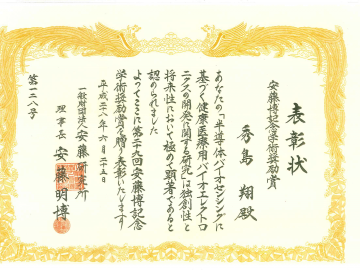 表彰状
安藤博記念学術奨励賞
秀島 翔殿
あなたの「半導体バイオセンシングに
基づく健康医療用バイオエレクトロ
ニクスの開発に関する研究」は独創性と
将来性において極めて顕著であると
認められました
よってここに第二十九回安藤博記念
学術奨励賞を贈り表彰いたします
平成二十八年六月二十五日
一般財団法人安藤研究所
理事長 安藤明博
第一二八号